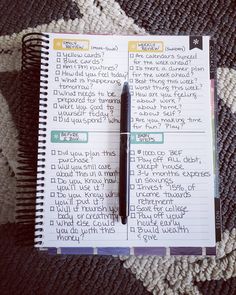 REVIEW (MON-SUN)
□ Yellow cards?
□ Blue cards?
□ Art / TN routine?
□ How did you feel today?
□ What is happening
tomorrow?
□ What needs to be
prepared for tomorrow?
□ Were you good to
yourself today?
□ Did you
REVIEW (SUNDAY)
□ Are calendars synced
for the week ahead?
□ Is there a dinner plan
for the week ahead?
□ Best thing this week?
□ Worst thing this week?
□ How are you feeling
- about work?
- about home?
- about self?
□ Are you making time
for fun? Play?
□ Did you plan this
purchase?
□ Will you still care
about this in a month?
□ Do you know how
you'll use it?
□ Do you know where
you'll put it?
□ Will it nourish your
body or creativity?
□ What else could
you do with this
money?
□ $1000.00 BEF
□ Pay off ALL debt,
except house
□ 3-6 months expenses
in savings
□ Invest 15% of
income towards
retirement
□ Save for college
□ Pay off your
house early
□ Build wealth
& give